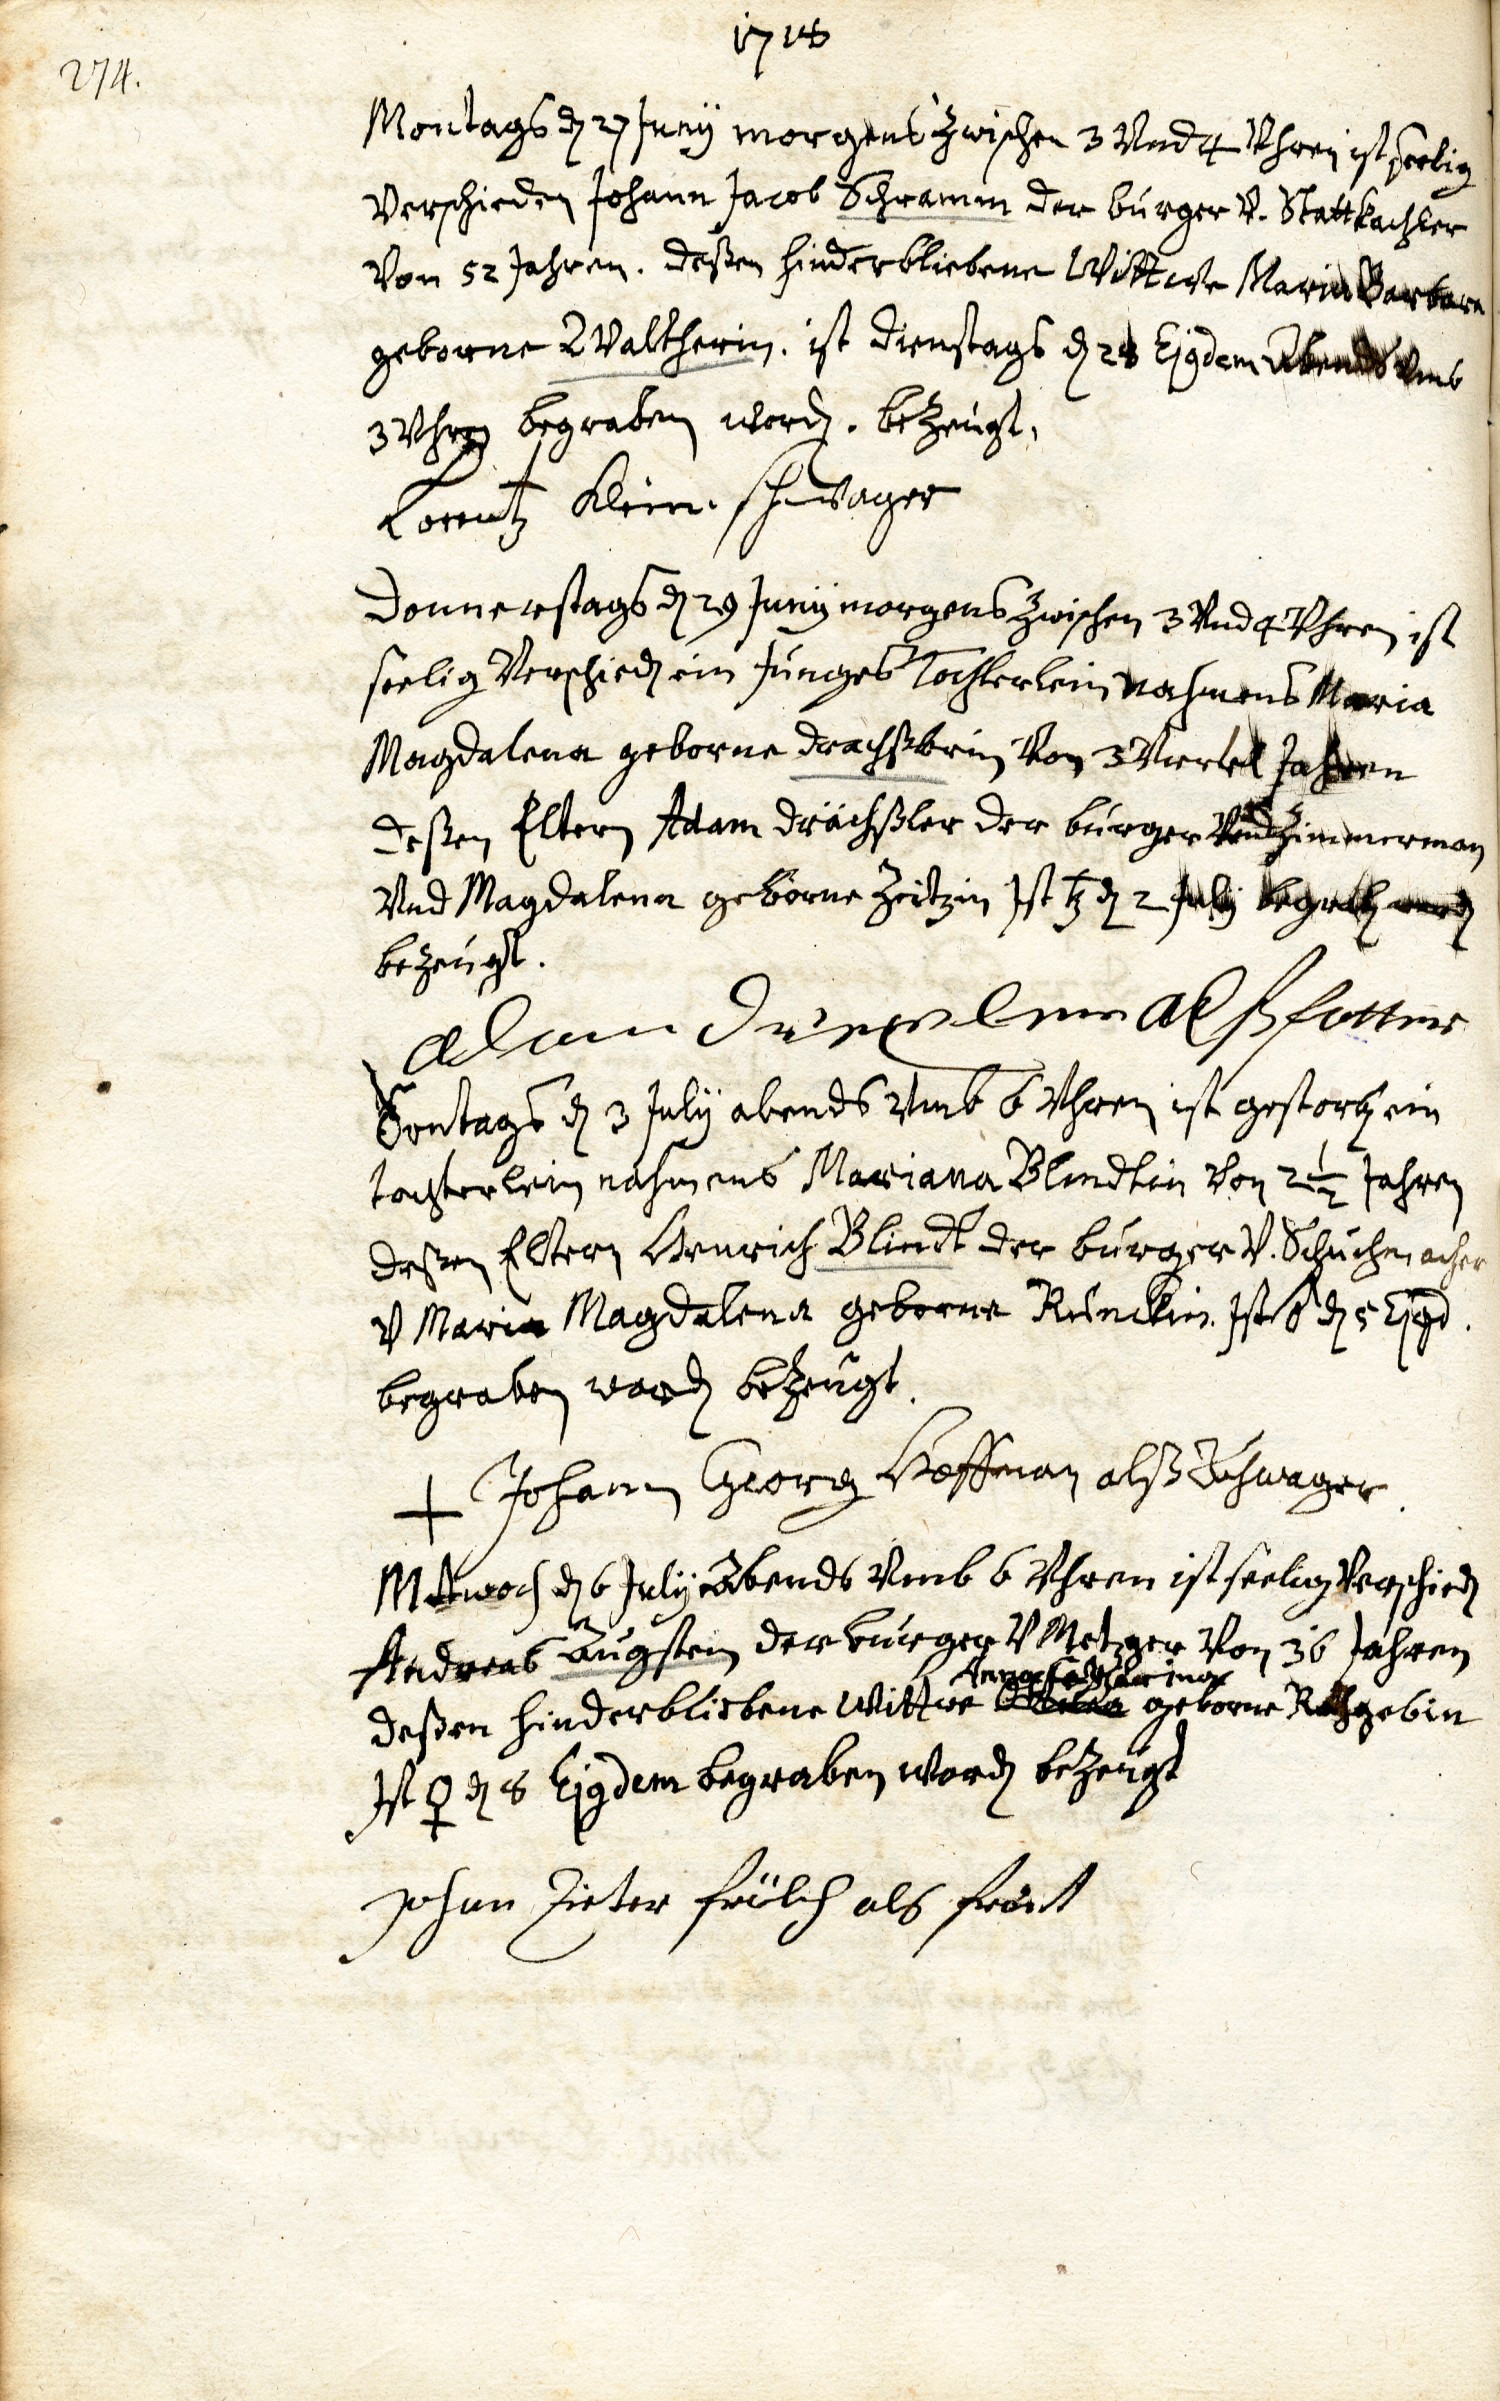 1718
274.
Montags d 27 Junÿ morgens zwischen 3 Vnd 4 Vhren ist seelig
Verschieden Johann Jacob Schramm der burger V. Stattkachler
Von 52 Jahren. deßen hinderbliebene Wittwe Maria Barbara
geborne Waltherin. ist dienstags d 28 Ejgdem Abends Vmb
3 Vhren begraben word. bezeugt.
Lorentz Klein. schwager
Donnerstags d 29 Junÿ morgens zwischen 3 Vnd 4 Vhren ist
seelig Verschied ein Junges Tochterlein nahmens Maria
Magdalena geborne Von 3 Viertel Jahren
deßen Eltern Adam drächßler der burger Vnd Zimmerman
Vnd Magdalena geborne Zeitzin Ist d 2 July begrab word
bezeugt.
adam als fatter
Sontags d 3 Julÿ abends Vmb 6 Vhren ist gestorb ein
tochterlein nahmens Mariana Blindtin Von 2 1/2 Jahren
deßen Eltern Henrich Blindt der burger V. Schuchmacher
V Maria Magdalena geborne Runckin. Ist d 5 Ejgd.
begraben word bezeugt.
+ Johann Georg Hoffman alß Schwager.
Mittwoch d 6 Julÿ Abends Vmb 6 Vhren ist seelig Verschied
Andreas Augstein der burger V Metzger Von 36 Jahren
Anna Catharina
deßen hinderbliebene Wittwe geborne Rathgebin
Ist ♀ d 8 Ejgdem begraben word bezeugt
Johan frölich als